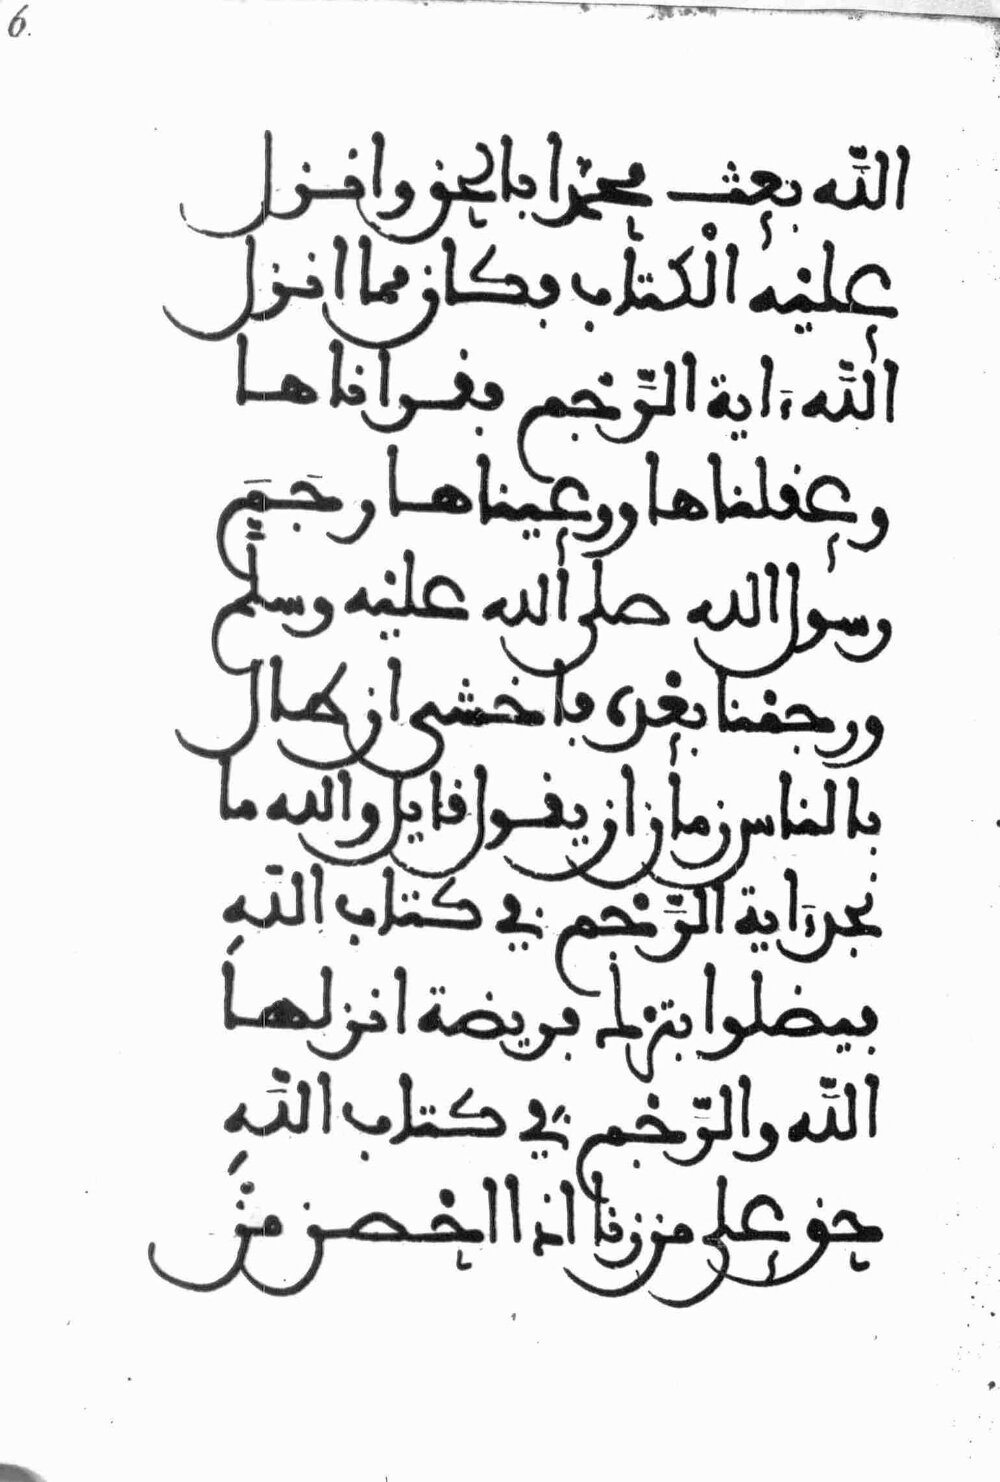 6.
الله بعث محمدا بالحق وانزل
عليه الكتاب فكان مما انزل
الله ءاية الرجم فقراناها
وعقلناها ووعيناها رجم
رسول الله صلى الله عليه وسلم
ورجمنا بعده فاخشى ان طال
بالناس زمان ان يقول قايل والله ما
نجد ءاية الرجم في كتاب الله
فيضلوا بترك فريضة انزلها
الله والرجم في كتاب الله
حق على من زنا اذا احصن من